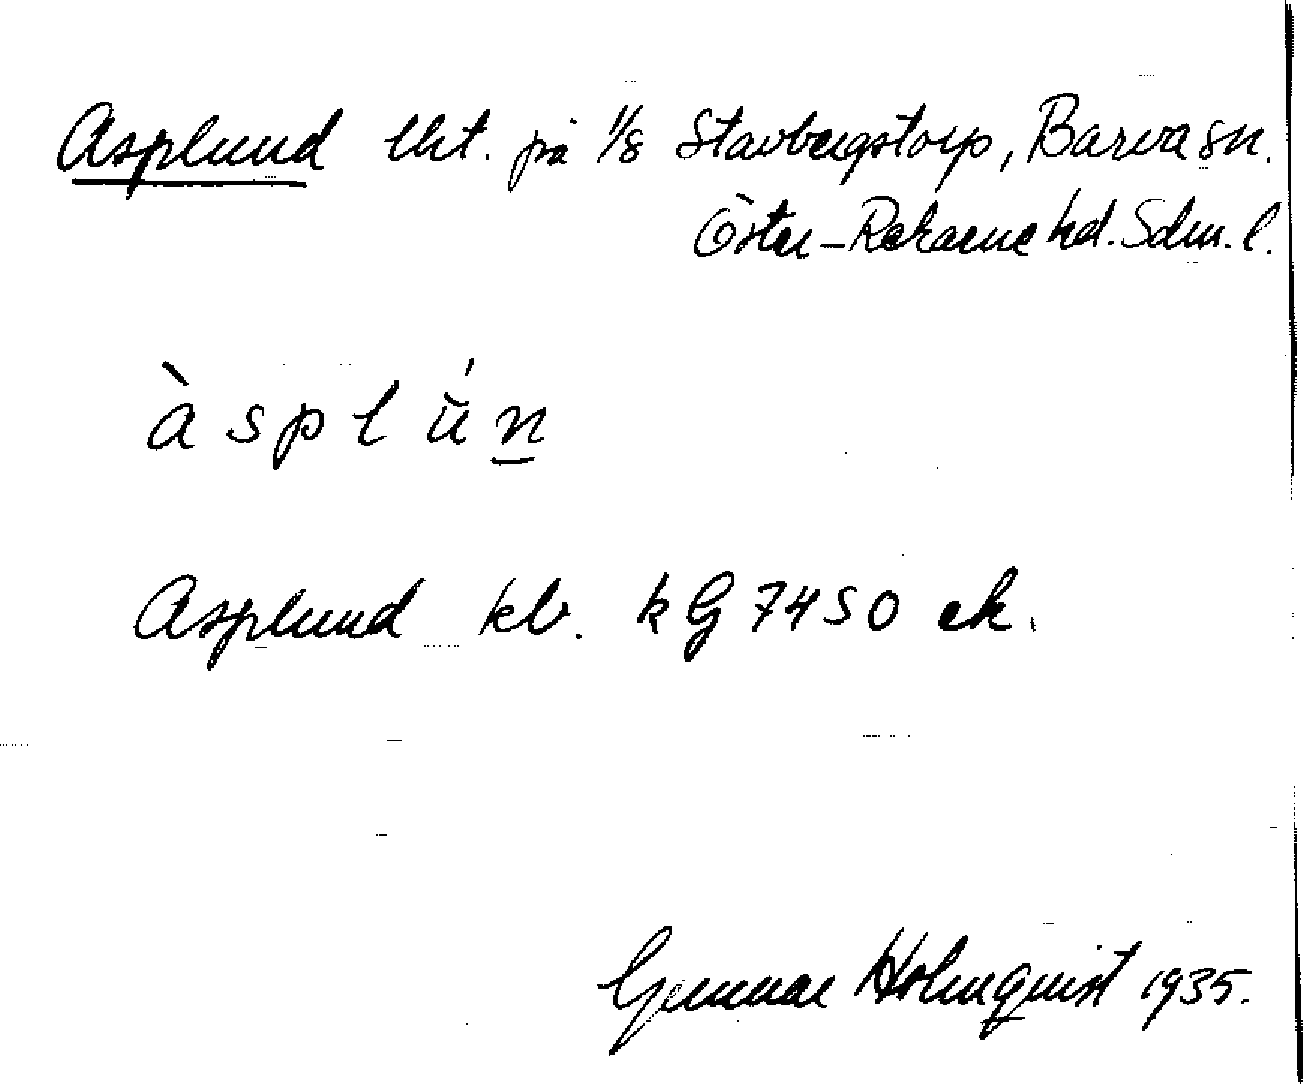 Asplund lht. på 1/8 Stavbergstorp, Barva sn.
Öster-Rekarne hd. Sdm. l.
àsplún
Asplund kb. kG 7450 ek.
Gunnar Holmquist 1935.